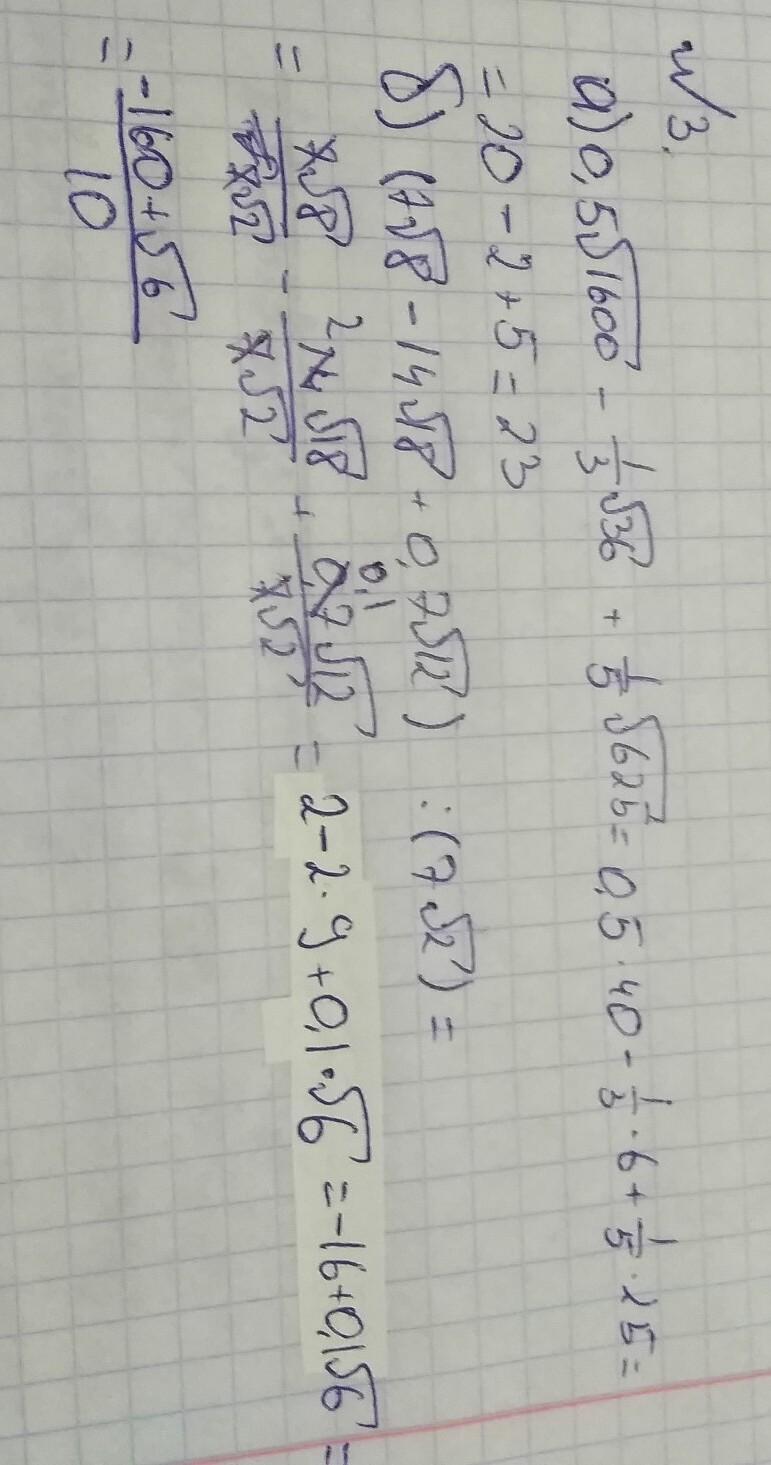 №3.
а) 0,5√1600 - 1/3√36 + 1/5√625 = 0,5·40 - 1/3·6 + 1/5·25 =
= 20 - 2 + 5 = 23
б) (7√8 - 14√18 + 0,7√12) : (7√2) =
= 7√8/7√2 - 2 14√18/7√2 + 0,1 0,7√12/7√2 = 2 - 2·9 + 0,1·√6 = -16 + 0,1√6 =
= -160+√6/10